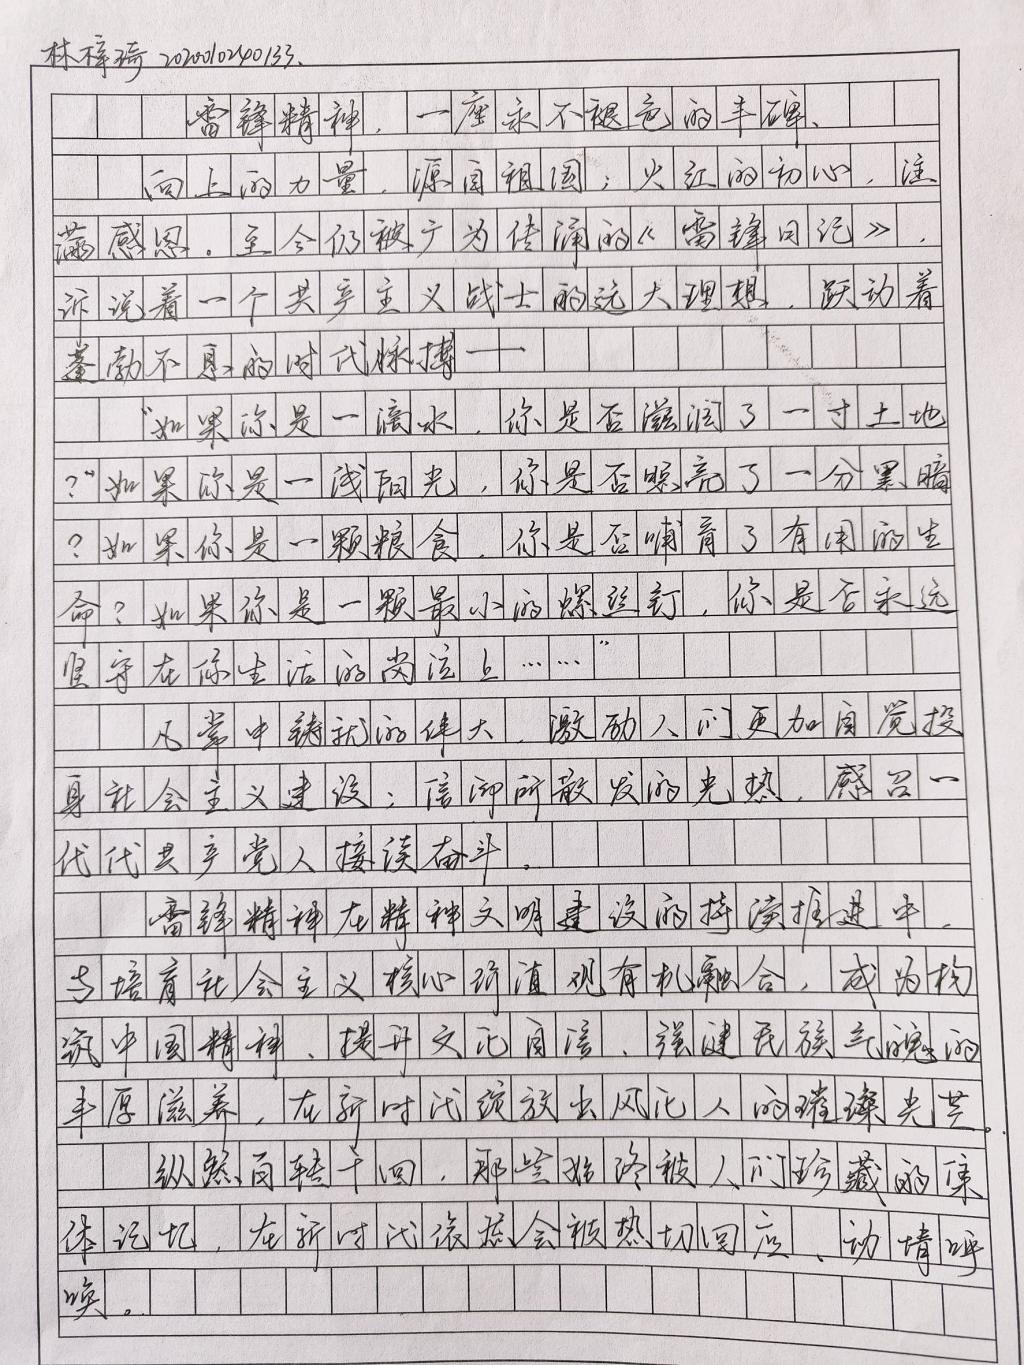 林梓琦 2020010240133.
雷锋精神，一座永不褪色的丰碑、
向上的力量，源自祖国；火红的初心，注
满感恩。至今仍被广为传诵的《雷锋日记》，
诉说着一个共产主义战士的远大理想，跃动着
蓬勃不息的时代脉搏——
“如果你是一滴水，你是否滋润了一寸土地
？”如果你是一线阳光，你是否照亮了一分黑暗
？如果你是一颗粮食，你是否哺育了有用的生
命？如果你是一颗最小的螺丝钉，你是否永远
坚守在你生活的岗位上……”
凡常中铸就的伟大，激励人们更加自觉投
身社会主义建设；信仰所散发的光热，感召一
代代共产党人接续奋斗。
雷锋精神在精神文明建设的持续推进中，
与培育社会主义核心价值观有机融合，成为构
筑中国精神、提升文化自信、强健民族气魄的
丰厚滋养，在新时代绽放出风化人的璀璨光芒。
纵然百转千回，那些始终被人们珍藏的集
体记忆，在新时代依然会被热切回应、动情呼
唤。